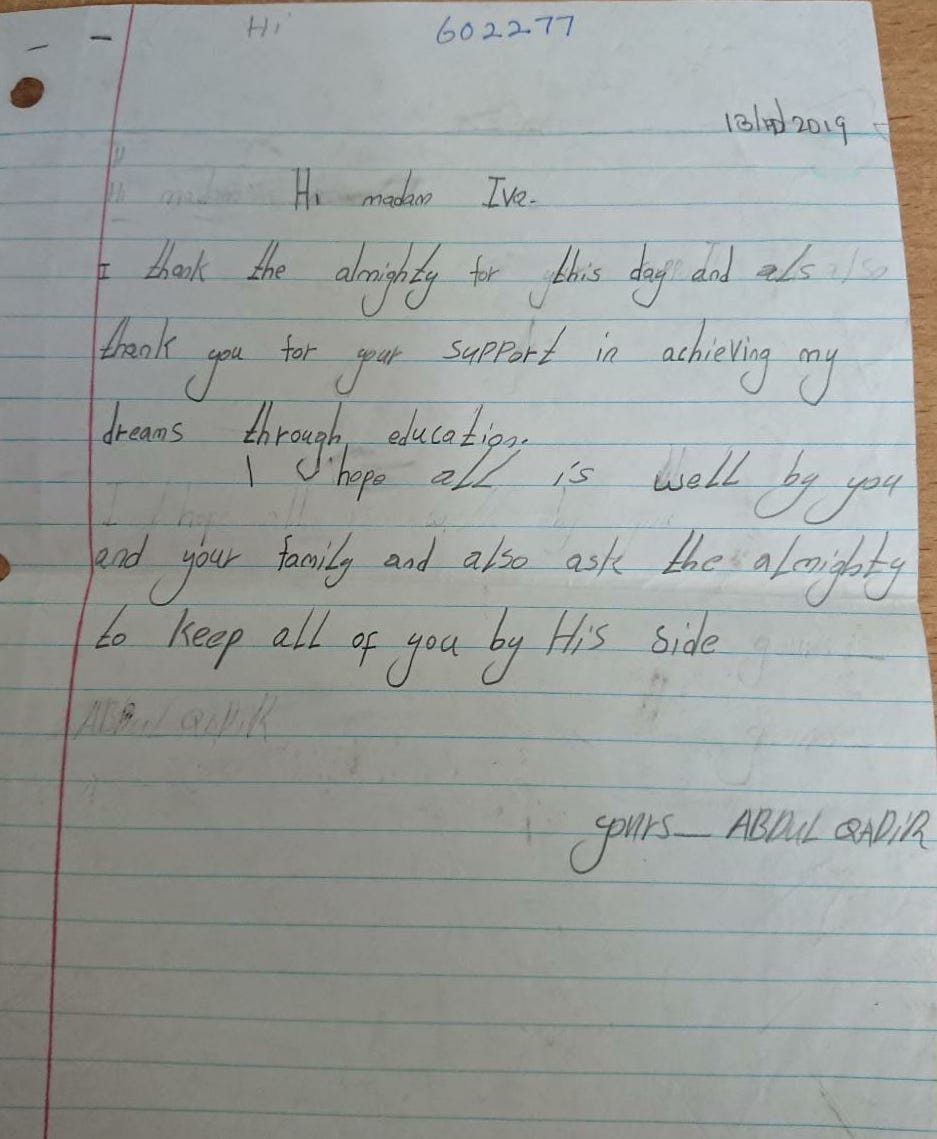 Hi 602277
13/ /2019
Hi madam Iva.
I thank the almighty for this day and als also
thank you for your support in achieving my
dreams through education.
I hope all is well by you
and your family and also ask the almighty
to keep all of you by His side
ABDUL QADIR
yours_ ABDUL QADIR